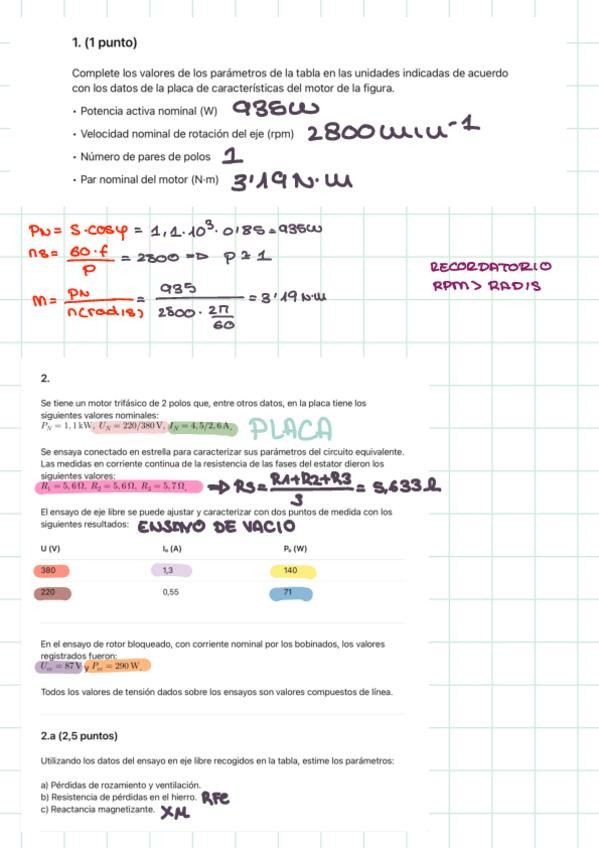 1. (1 punto)
Complete los valores de los parámetros de la tabla en las unidades indicadas de acuerdo
con los datos de la placa de características del motor de la figura.
• Potencia activa nominal (W) 935W
• Velocidad nominal de rotación del eje (rpm) 2800 min-1
• Número de pares de polos 1
• Par nominal del motor (N·m) 3'19 N·m
PN = S·cosφ = 1,1·10³·0'85 = 935W
ns = 60·f / P = 2800 => P = 1
M = PN / n(rad/s) = 935 / 2800 · 2π/60 = 3'19 N·m
RECORDATORIO
RPM > RAD/S
2.
Se tiene un motor trifásico de 2 polos que, entre otros datos, en la placa tiene los
siguientes valores nominales:
P_N = 1,1 kW, U_N = 220/380 V, I_N = 4,5/2,6 A. PLACA
Se ensaya conectado en estrella para caracterizar sus parámetros del circuito equivalente.
Las medidas en corriente continua de la resistencia de las fases del estator dieron los
siguientes valores:
R₁ = 5,6 Ω, R₂ = 5,6 Ω, R₃ = 5,7 Ω. => RS = R1+R2+R3 / 3 = 5,633 Ω
El ensayo de eje libre se puede ajustar y caracterizar con dos puntos de medida con los
siguientes resultados: ENSAYO DE VACIO
U (V) I₀ (A) P₀ (W)
380 1,3 140
220 0,55 71
En el ensayo de rotor bloqueado, con corriente nominal por los bobinados, los valores
registrados fueron:
U_cc = 87 V y P_cc = 290 W.
Todos los valores de tensión dados sobre los ensayos son valores compuestos de línea.
2.a (2,5 puntos)
Utilizando los datos del ensayo en eje libre recogidos en la tabla, estime los parámetros:
a) Pérdidas de rozamiento y ventilación.
b) Resistencia de pérdidas en el hierro. RFe
c) Reactancia magnetizante. XM